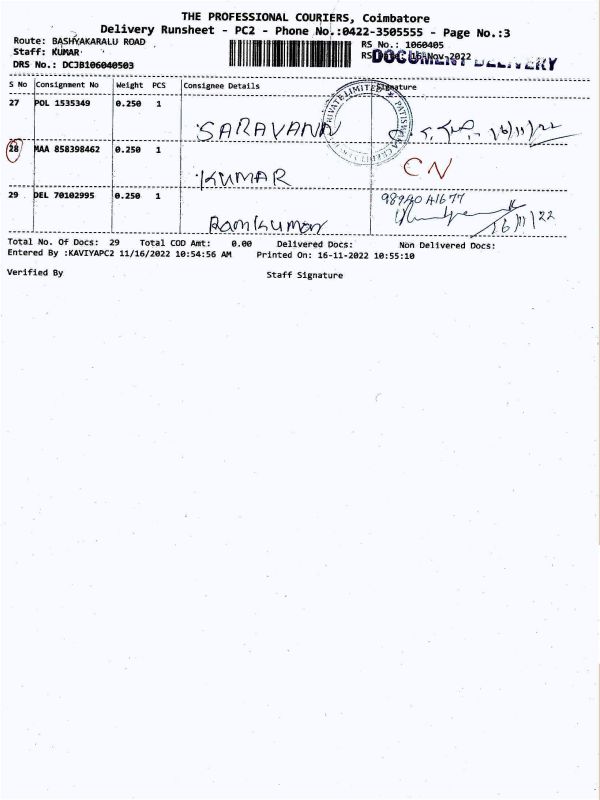 THE PROFESSIONAL COURIERS, Coimbatore
Delivery Runsheet - PC2 - Phone No.:0422-3505555 - Page No.:3
Route: BASHYAKARALU ROAD
RS No.: 1060405
Staff: KUMAR
16-Nov-2022
DOCUMENT DELIVERY
DRS No.: DCJB106040503
S No Consignment No Weight PCS Consignee Details Signature
27 POL 1535349 0.250 1
PRIVATE LIMITED
SARAVANN 16/11/22
28 MAA 858398462 0.250 1
KUMAR CN
29 DEL 70102995 0.250 1
Ramkumar 16/11/22
Total No. Of Docs: 29 Total COD Amt: 0.00 Delivered Docs: Non Delivered Docs:
Entered By :KAVIYAPC2 11/16/2022 10:54:56 AM Printed On: 16-11-2022 10:55:10
Verified By Staff Signature